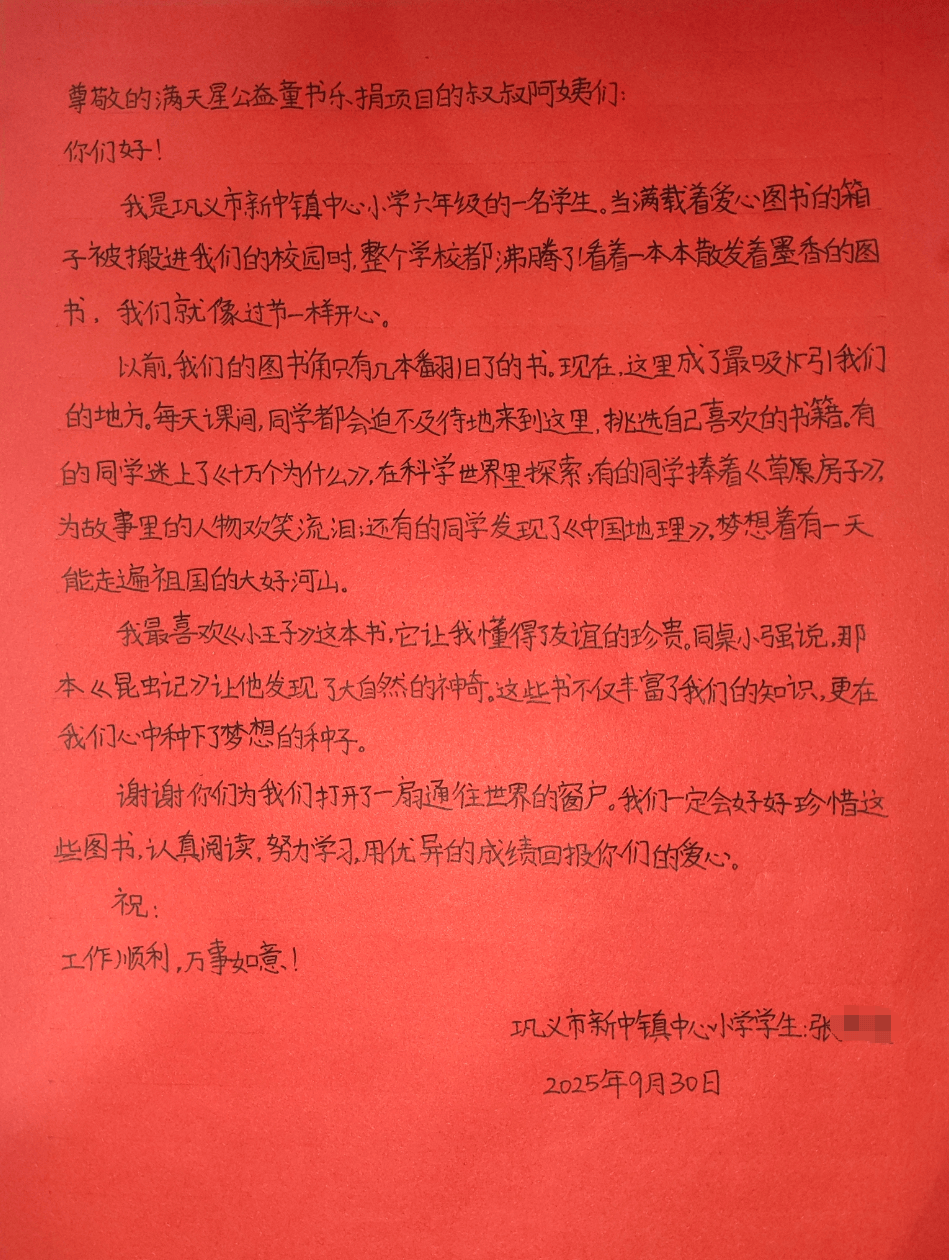 尊敬的满天星公益童书乐捐项目的叔叔阿姨们:
你们好!
我是巩义市新中镇中心小学六年级的一名学生。当满载着爱心图书的箱
子被搬进我们的校园时,整个学校都沸腾了!看着一本本散发着墨香的图
书,我们就像过节一样开心。
以前,我们的图书角只有几本翻旧了的书。现在,这里成了最吸引我们
的地方。每天课间,同学都会迫不及待地来到这里,挑选自己喜欢的书籍。有
的同学迷上了《十万个为什么》,在科学世界里探索;有的同学捧着《草原房子》,
为故事里的人物欢笑流泪;还有的同学发现了《中国地理》,梦想着有一天
能走遍祖国的大好河山。
我最喜欢《小王子》这本书,它让我懂得了友谊的珍贵。同桌小强说,那
本《昆虫记》让他发现了大自然的神奇。这些书不仅丰富了我们的知识,更在
我们心中种下了梦想的种子。
谢谢你们为我们打开了一扇通往世界的窗户。我们一定会好好珍惜这
些图书,认真阅读,努力学习,用优异的成绩回报你们的爱心。
祝:
工作顺利,万事如意!
巩义市新中镇中心小学学生:张
2025年9月30日